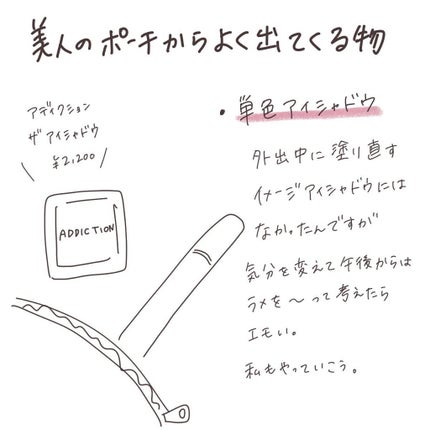 美人のポーチからよく出てくる物
アディクション
ザ アイシャドウ
¥2,200
ADDICTION
• 単色アイシャドウ
外出中に塗り直す
イメージアイシャドウには
なかったんですが
気分を変えて午後からは
ラメを〜って考えたら
エモい。
私もやっていこう。